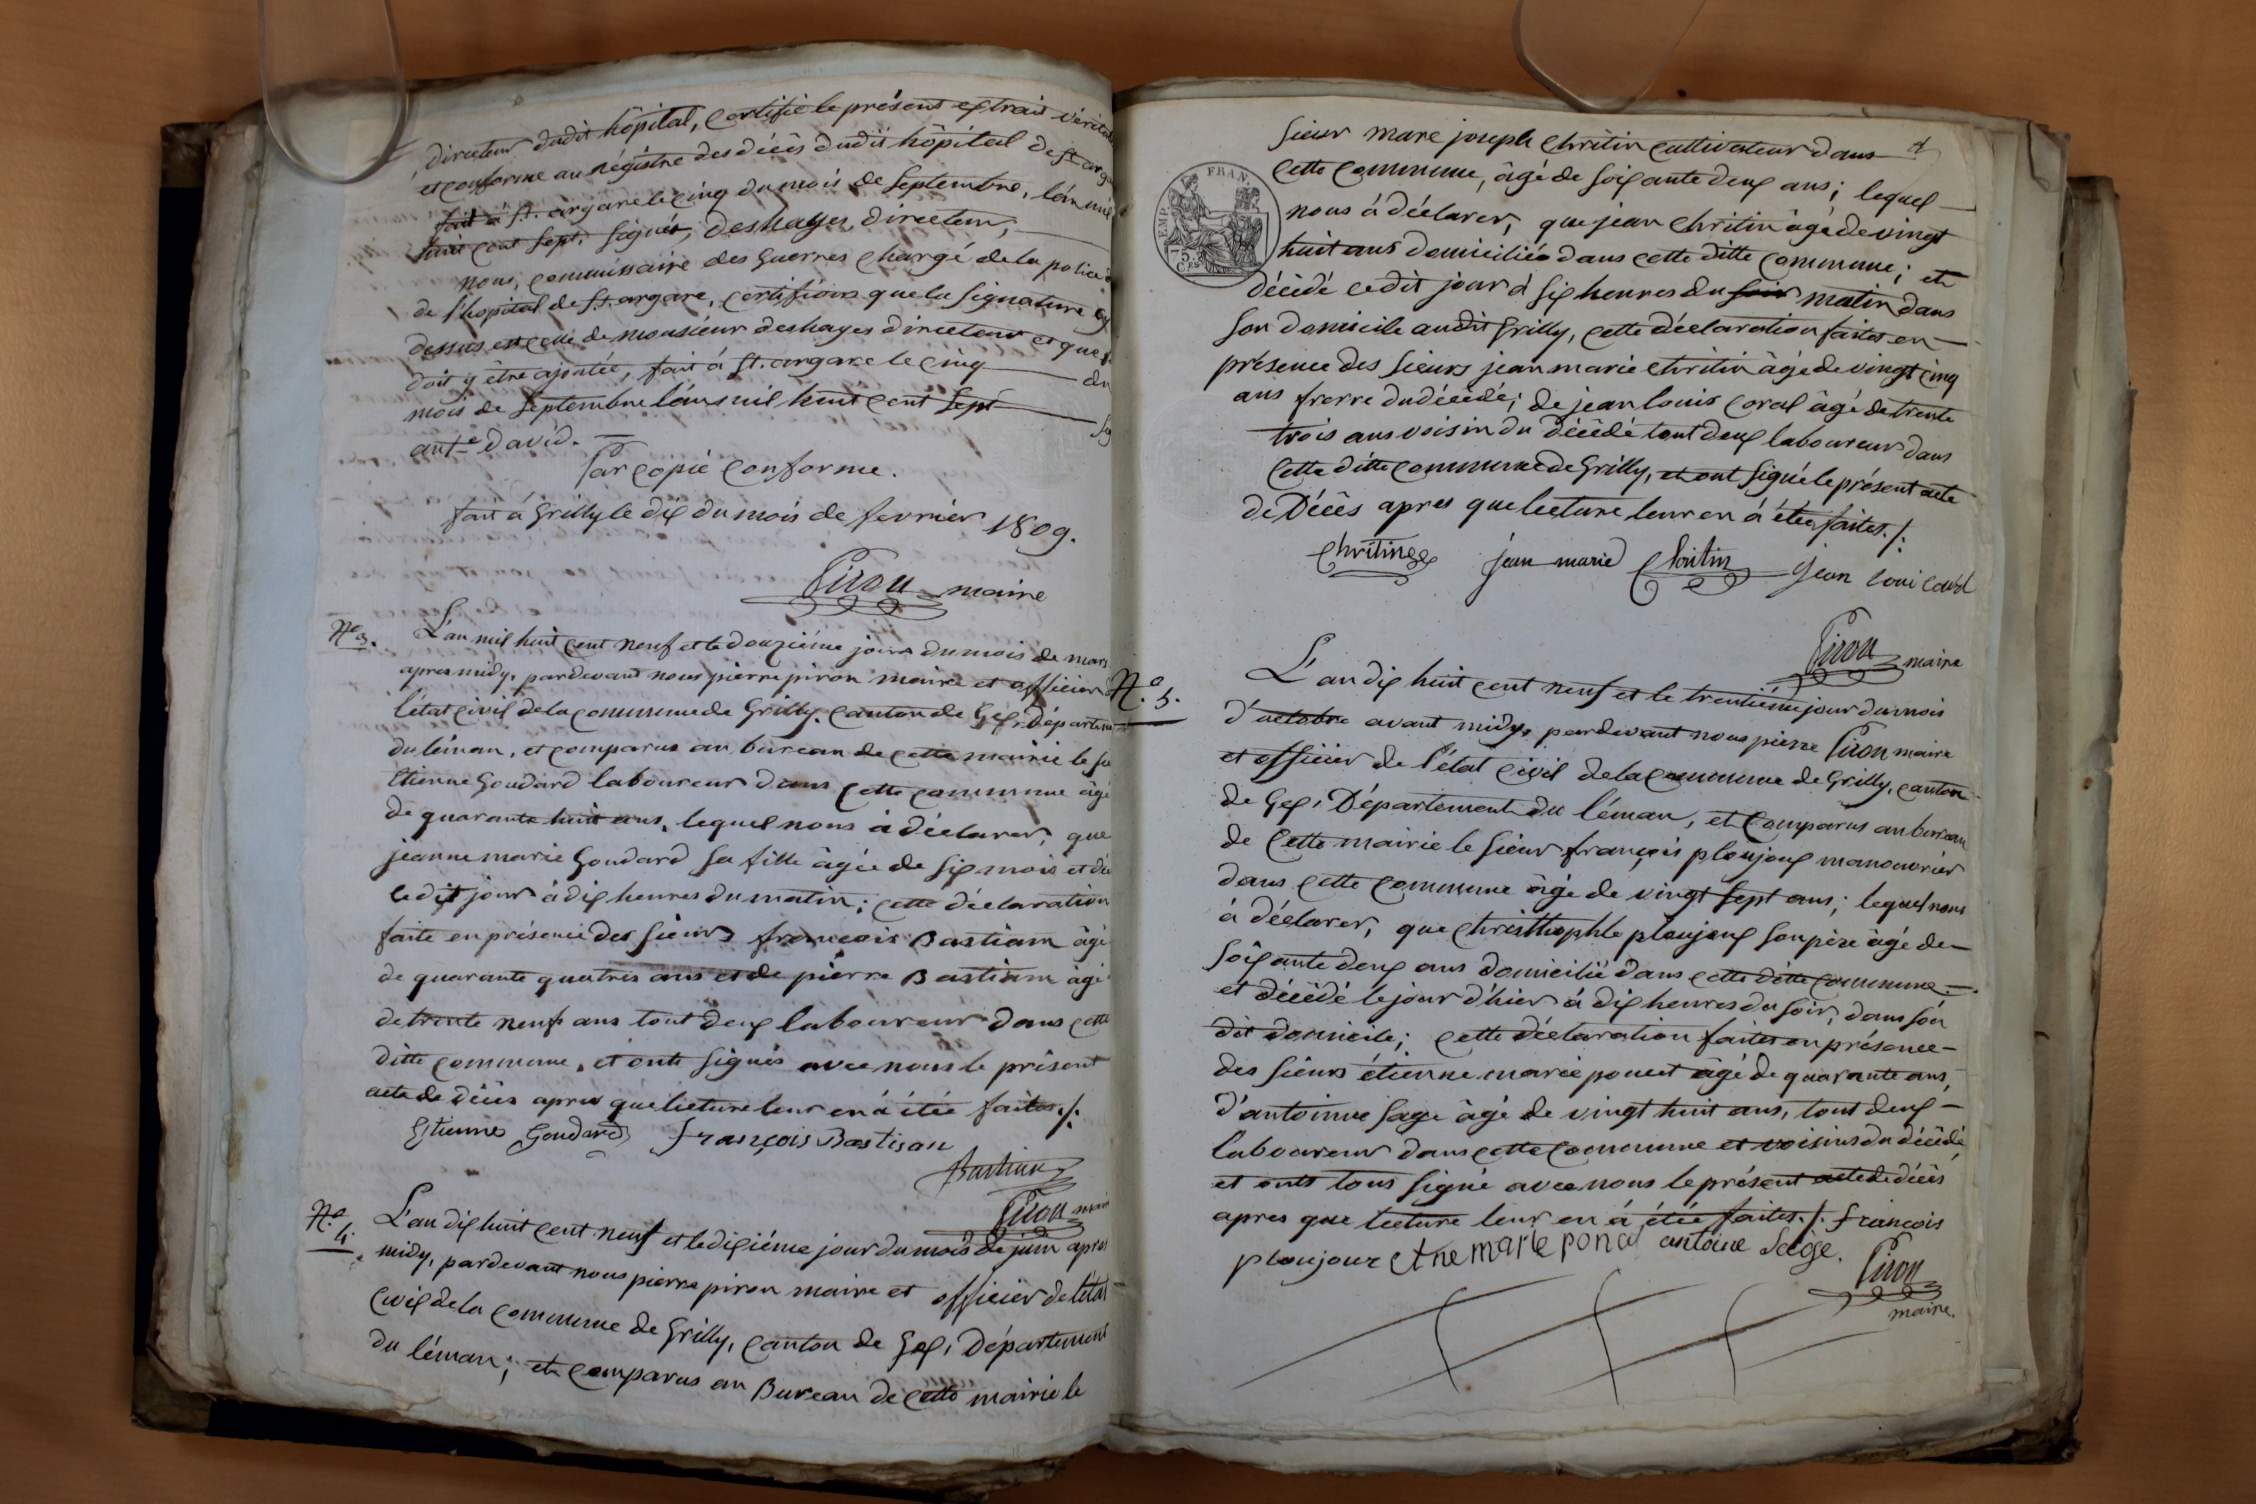 directeur dudit hôpital, certifie le présent extrait vérita
et conforme au régistre des décès dudit hôpital de St. arga
fait à St. argare le cinq du mois de Septembre, l'án mil
huit cent sept. signés, deshayes, directeur,
nous, commissaire des Guerres chargé de la police
de l'hopital de St. argare, certifions que la signature cy
dessus est celle de monsieur deshayes directeur et que
doit y être ajoutée, fait à St. argare le cinq du
mois de Septembre l'án mil huit cent Sept
david.
Par copie conforme.
fait à Grilly le dix du mois de fevrier 1809.
Piron maire
N.o 3.
L'an mil huit cent neuf et le douzième jour du mois de mars
apres midy, pardevant nous pierre piron maire et officier
l'état civil de la commune de Grilly, canton de Gex, Départem
du léman, et comparus au bureau de cette mairie le
Etienne Goudard laboureur dans cette commune âgé
de quarante huit ans, lequel nous à déclarer, que
jeanne marie Goudard sa fille âgée de six mois et dé
le dit jour à dix heures du matin; cette déclaration
faite en présence des sieurs francois Bastian âgé
de quarante quatres ans et de pierre Bastian âgé
de trente neuf ans tout deux laboureur dans cette
ditte commune, et onts signés avec nous le présent
acte de décès apres que lecture leur en à étée faites./.
Etienne Goudard françois Bastian
Bastian
Piron maire
N.o 4.
L'an dix huit cent neuf et le dixième jour du mois de juin apres
midy, pardevant nous pierre piron maire et officier de l'état
civil de la commune de Grilly, canton de Gex, Département
du léman; et comparus au Bureau de cette mairie le
FRAN.
75 Ces
sieur marc joseph chritin cultivateur dans
cette commune, âgé de soixante deux ans; lequel
nous à déclarer, que jean chritin âgé de vingt
huit ans domiciliéé dans cette ditte commune; et
décédé cedit jour à six heures du soir matin dans
son domicile audit Grilly, cette déclaration faites en
présence des sieurs jean marie chritin âgé de vingt cinq
ans frerre du décédé; de jean louis coral âgé de trente
trois ans voisin du décédé tout deux laboureur dans
cette ditte commune de Grilly, et ont signé le présent acte
de Décès apres que lecture leur en à étée faites./.
Chritin jean marie Chritin jean loui
Piron maire
N.o 5.
L'an dix huit cent neuf et le trentième jour du mois
d'octobre avant midy, pardevant nous pierre Piron maire
et officier de l'état civil de la commune de Grilly, canton
de Gex, Département du léman, et comparus au bureau
de cette mairie le sieur françois ploujoux manouvrier
dans cette commune âgé de vingt sept ans; lequel nous
à déclarer, que christhophle ploujoux son père âgé de
soixante deux ans domicilié dans cette ditte commune
et décédé le jour d'hier à dix heures du soir, dans són
dit domicile; cette déclaration faites en présence
des sieurs étienne marie poncet âgé de quarante ans,
d'antoinne sage âgé de vingt huit ans, tout deux
laboureur dans cette commune et voisins du décédé,
et onts tous signé avec nous le présent acte de décès
apres que lecture leur en à étée faites./. francois
ploujoux marie antoine Sage.
Piron
maire.